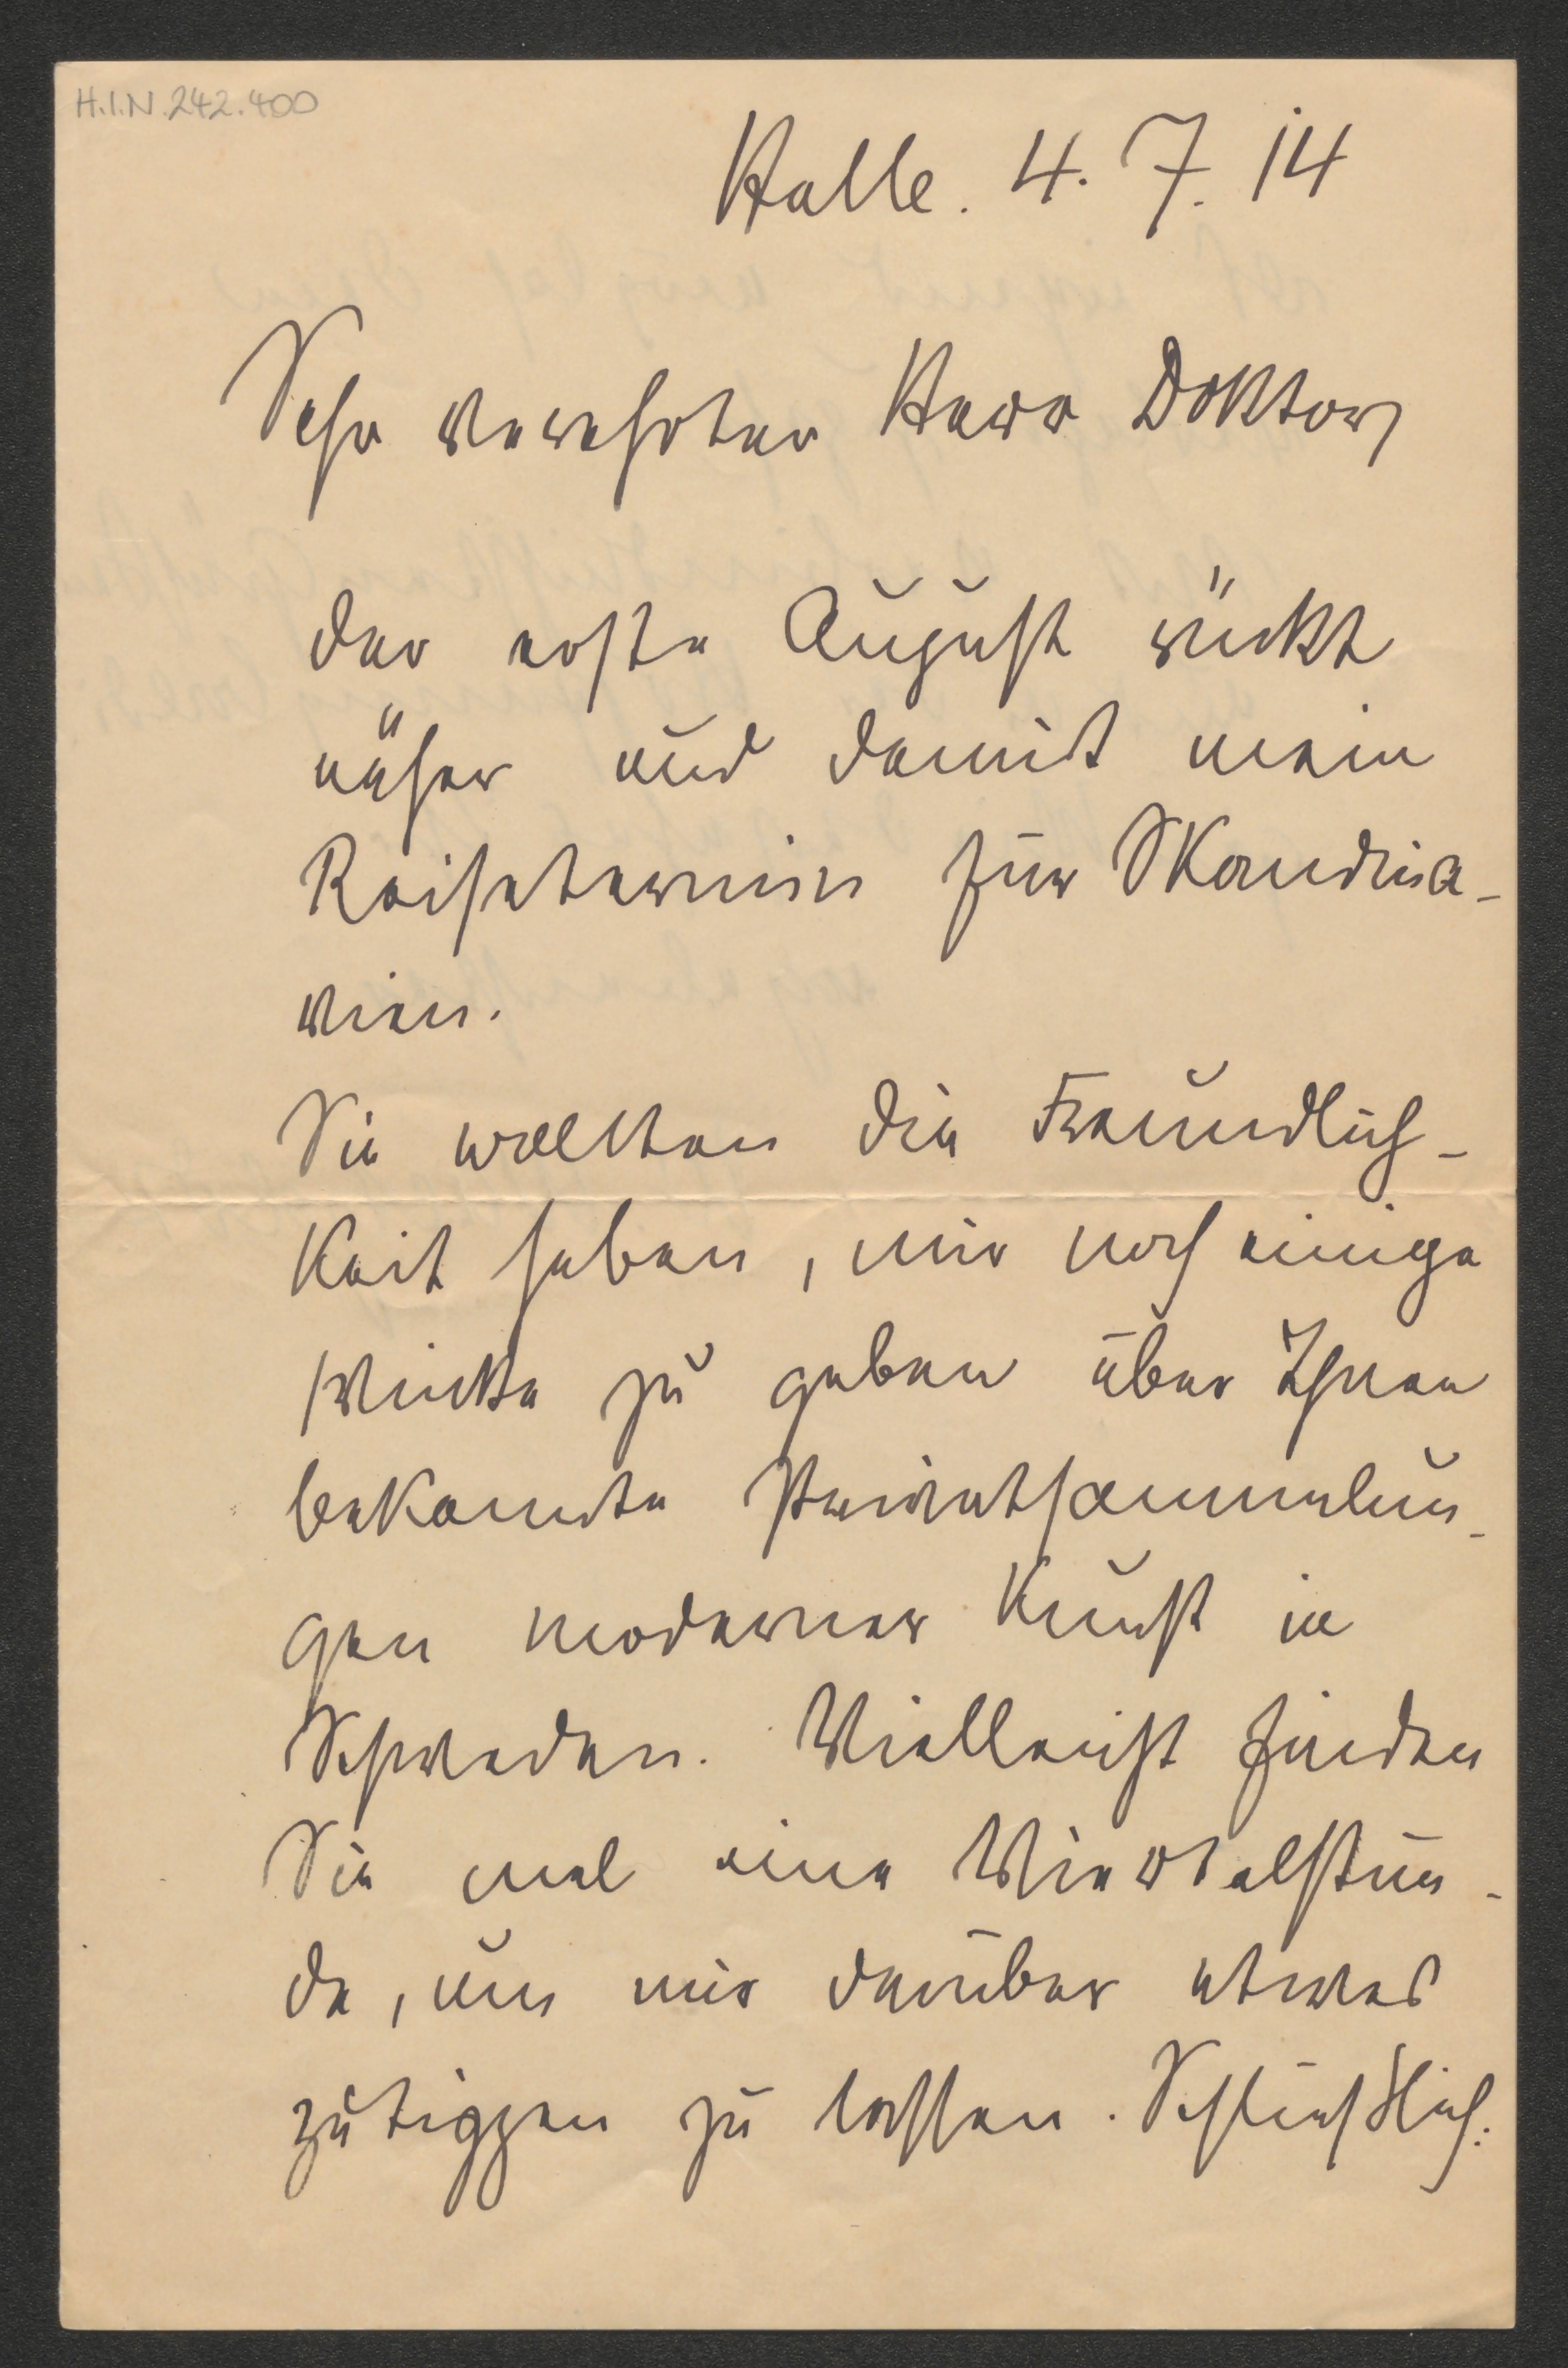 H.I.N. 242.400
Halle. 4. 7. 14
Sehr verehrter Herr Doktor,
der erste August rückt
näher und damit mein
Reisetermin für Skandina-
vien.
Sie wollten die Freundlich-
keit haben, mir noch einige
Winke zu geben über Ihnen
bekannte Privatsammlun-
gen moderner Kunst in
Schweden. Vielleicht finden
Sie mal eine Viertelstun-
de, um mir darüber etwas
zutippen zu lassen. Schließlich: